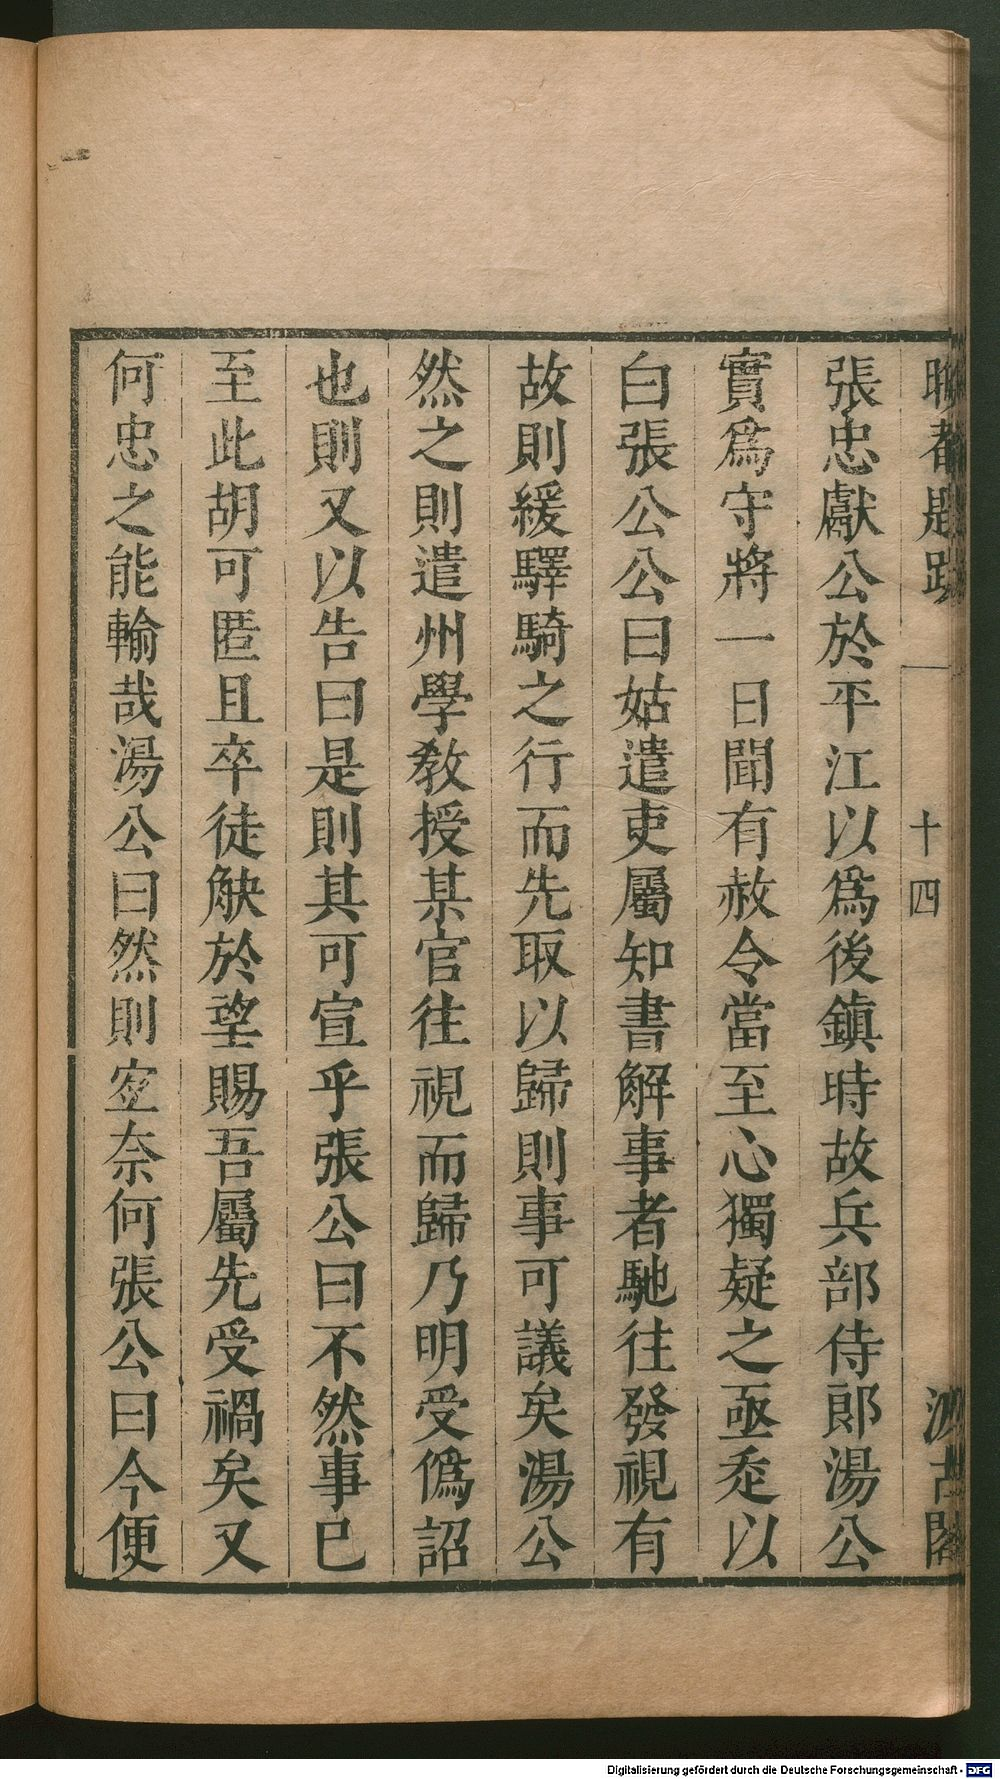 張忠獻公於平江以爲後鎮時故兵部侍郎湯公
實爲守將一日聞有赦令當至心獨疑之亟走以
白張公公曰姑遣吏屬知書解事者馳往發視有
故則緩驛騎之行而先取以歸則事可議矣湯公
然之則遣州學教授某官往視而歸乃明受僞詔
也則又以告曰是則其可宣乎張公曰不然事已
至此胡可匿且卒徒觖於望賜吾屬先受禍矣又
何忠之能輸哉湯公曰然則空奈何張公曰今便
十四
Digitalisierung gefördert durch die Deutsche Forschungsgemeinschaft - DFG